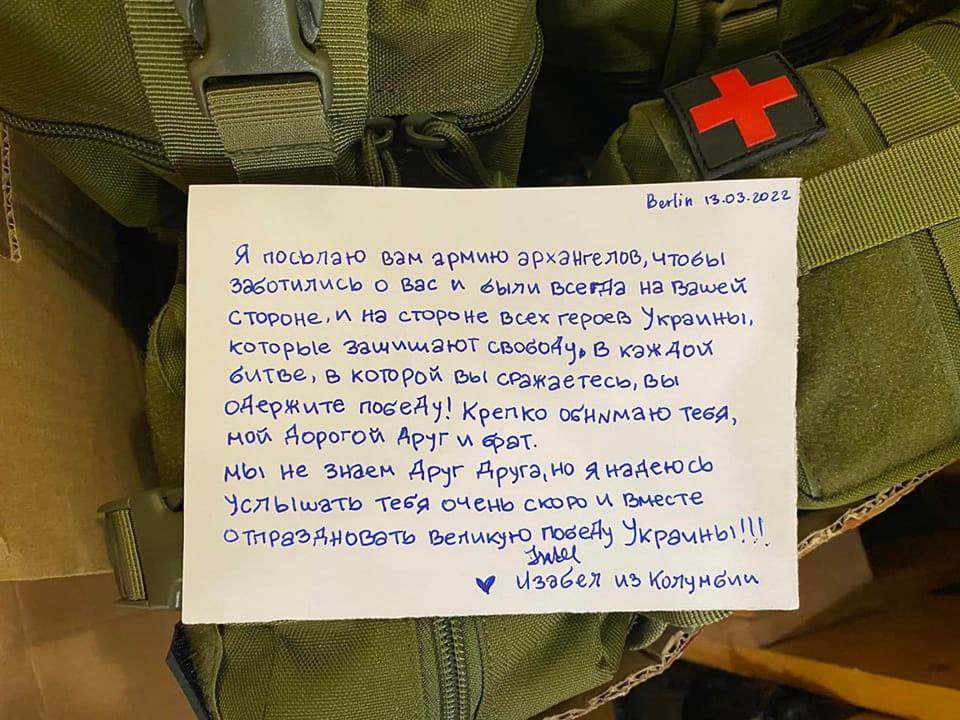 Berlin 13.03.2022
Я посылаю вам армию архангелов, чтобы
заботились о вас и были всегда на вашей
стороне, и на стороне всех героев Украины,
которые защишают свободу. В каждой
битве, в которой вы сражаетесь, вы
одержите победу! Крепко обнимаю тебя,
мой дорогой друг и брат.
мы не знаем друг друга, но я надеюсь
услышать тебя очень скоро и вместе
отпраздновать великую победу Украины!!!
♥ Изабел из Колумбии